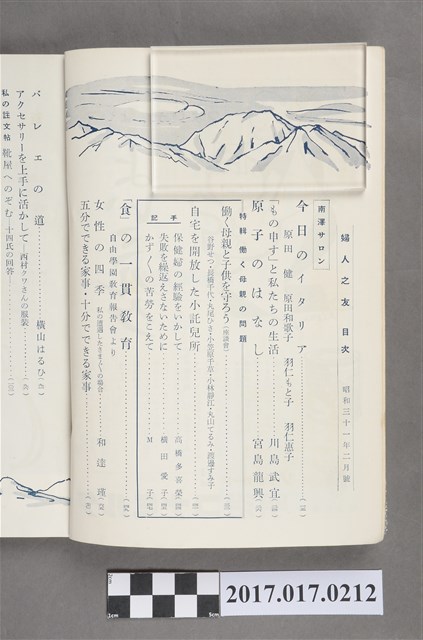 婦人之友 目次
昭和三十一年二月號
南澤サロン
今日のイタリア
原田健 原田和歌子 羽仁もと子 羽仁惠子
「もの申す」と私たちの生活 川島武宜
原子のはなし 宮島龍興
特輯 働く母親の問題
働く母親と子供を守ろう(座談會)
谷野せつ・高橋千代・丸尾ひさ・小笠原千草・小林靜江・丸山てるみ・渡邊すみ子
自宅を開放した小託兒所
手記
保健婦の經驗をいかして 高橋多喜榮
失敗を繰返えさないために 横田愛子
かず〱の苦勞をこえて M子
「食」の一貫敎育
自由學園敎育報告會より
女性の四季 和達瑾
五分でできる家事・十分でできる家事
バレエの道 横山はるひ
アクセサリーを上手に活かして―西村クワさんの服装
私の註文帖 靴屋へのぞむ―十四氏の回答
2017.017.0212